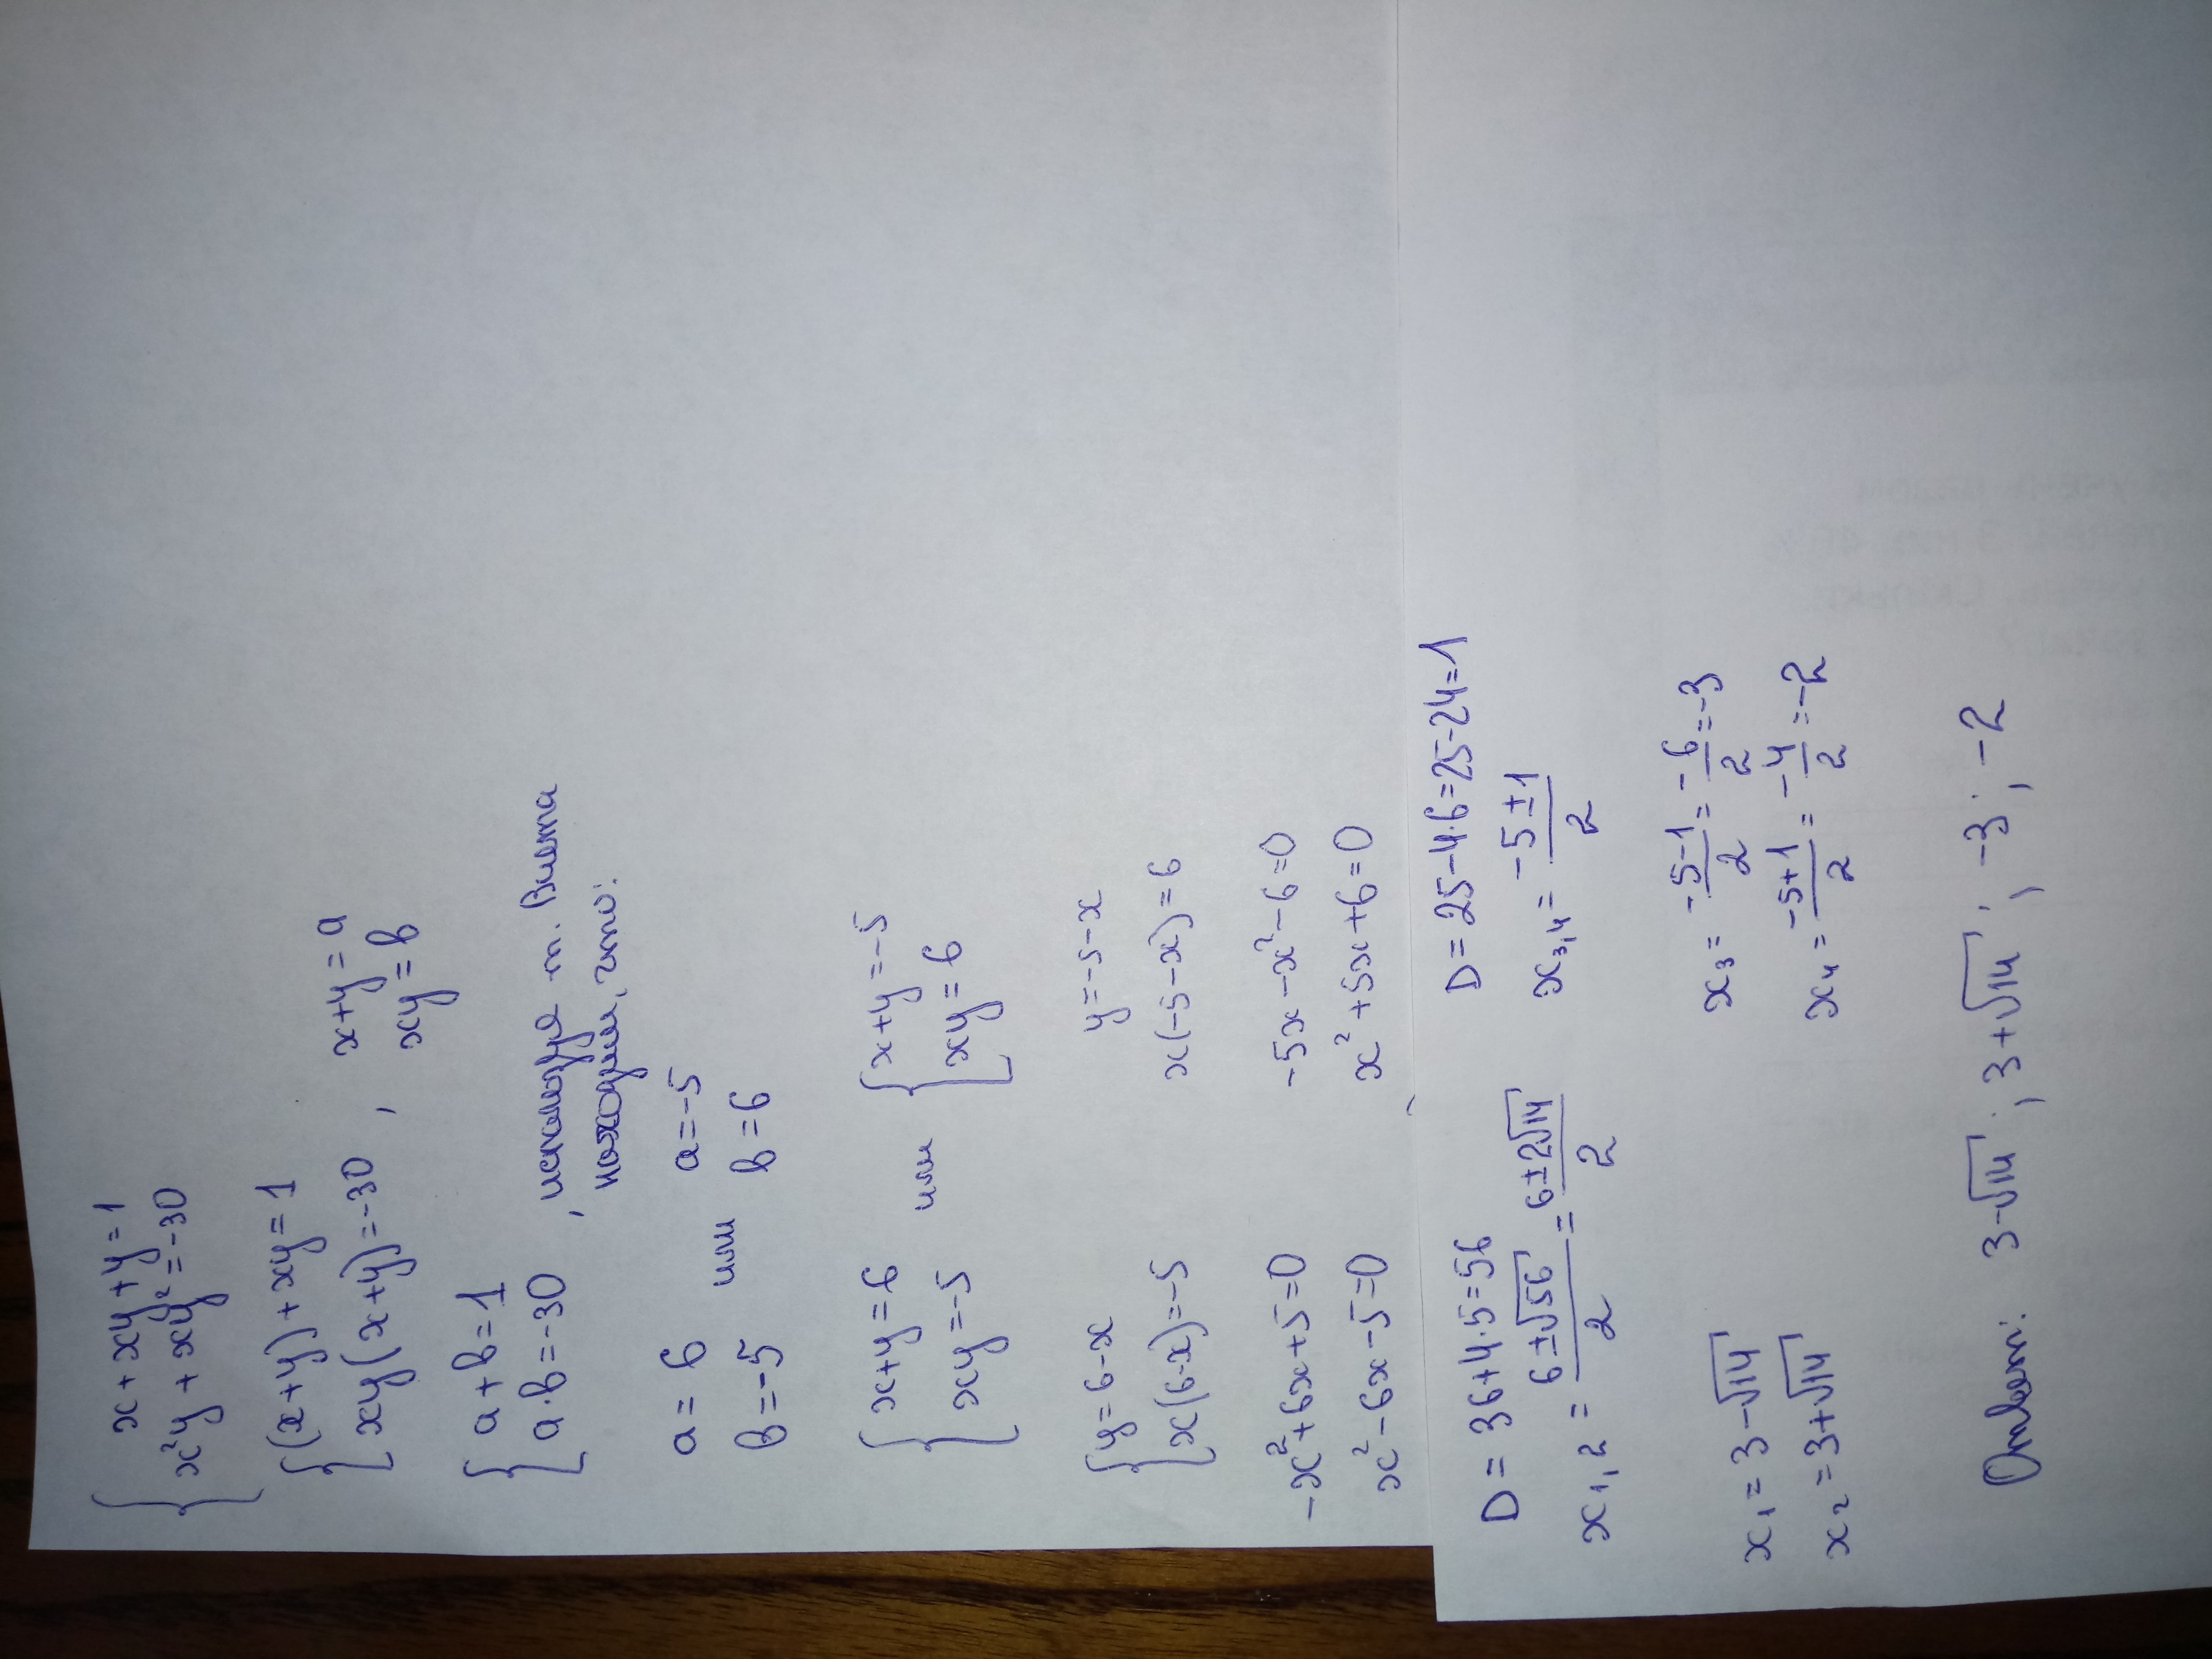 { x + xy + y = 1
x²y + xy² = -30
{ (x+y) + xy = 1
xy(x+y) = -30 , x+y = a
xy = b
{ a + b = 1
a·b = -30 , используя т. Виета
находим, что:
a = 6 или a = -5
b = -5 b = 6
{ x+y = 6 или { x+y = -5
xy = -5 xy = 6
{ y = 6-x y = -5-x
x(6-x) = -5 x(-5-x) = 6
-x²+6x+5=0 -5x-x²-6=0
x²-6x-5=0 x²+5x+6=0
D = 36+4·5=56 D = 25-4·6=25-24=1
x₁,₂ = (6±√56)/2 = (6±2√14)/2 x₃,₄ = (-5±1)/2
x₁ = 3-√14 x₃ = (-5-1)/2 = -6/2 = -3
x₂ = 3+√14 x₄ = (-5+1)/2 = -4/2 = -2
Ответ: 3-√14 ; 3+√14 ; -3 ; -2